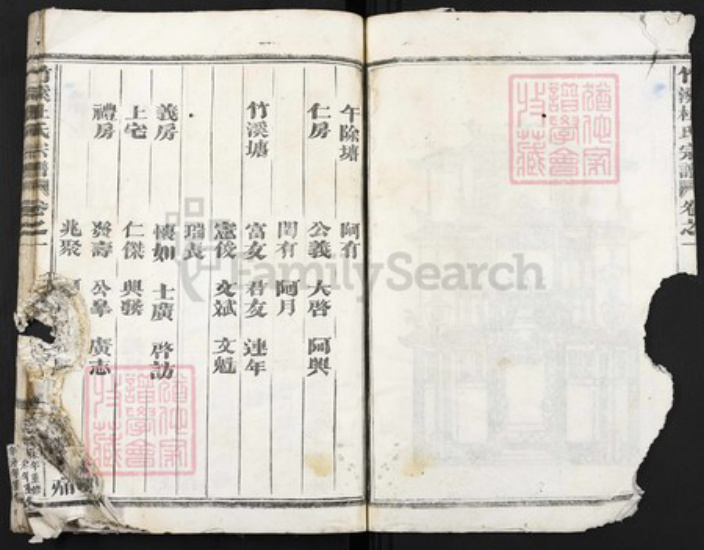 竹溪杜氏宗譜 卷之一
午除塘 阿有
仁房 公義 大啓 阿興
閏有 阿月
竹溪塘 富友 君友 連年
憲俊 文斌 文魁
瑞表
義房 懷如 士廣 啓訪
上宅 仁傑 興發
禮房 發壽 公舉 廣志
兆聚
竹溪杜氏宗譜 卷之一
FamilySearch